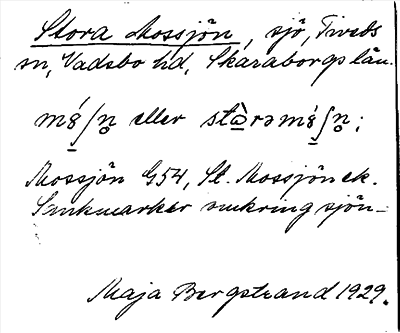 Stora Mossjön, sjö, Tiveds
sn, Vadsbo hd, Skaraborgs län.
eller
Mossjön G54, St. Mossjön ek.
Sankmarker omkring sjön_
Maja Bergstrand 1929.